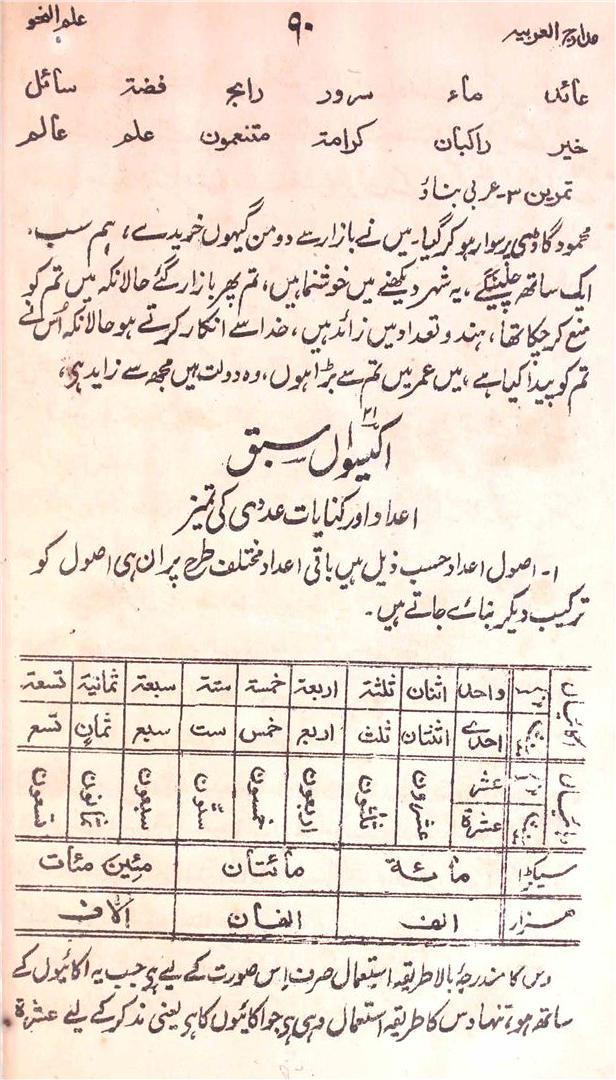 مدارج العربیہ ۹۰ علم النحو
عائد ماء سرور رابح فضۃ سائل
خیر راکبان کرامۃ متنعمون علم عالم
تمرین ۳- عربی بناؤ
محمود گاڈھی پر سوار ہو کر گیا۔ میں نے بازار سے دو من گیہوں خریدے، ہم سب۔
ایک ساتھ چلینگے، یہ شہر دیکھنے میں خوشنما ہیں، تم پھر بازار گئے حالانکہ میں تم کو
منع کر چکا تھا، ہندو تعداد میں زائد ہیں، خدا سے انکار کرتے ہو حالانکہ اُس نے
تم کو پیدا کیا ہے، میں عمر میں تم سے بڑا ہوں، وہ دولت میں مجھ سے زاید ہی،
۲۱
اکیسواں سبق
اعداد اور کنایات عددی کی تمیز
۱- اصول اعداد حسب ذیل ہیں باقی اعداد مختلف طرح پر ان ہی اصول کو
ترکیب دیکر بنائے جاتے ہیں۔
اکائیاں مذکر واحد اثنان ثلثۃ اربعۃ خمسۃ ستۃ سبعۃ ثمانیۃ تسعۃ
مونث احدے اثنتان ثلث اربع خمس ست سبع ثمان تسع
دہائیاں مذکر عشر عشرون ثلثون اربعون خمسون ستّون سبعون ثمانون تسعون
مونث عشرۃ
سیکڑا مائۃ مائتان مئین مئات
ھزار الف الفان اٰلاف
دس کا مندرجۂ بالا طریقہ استعمال صرف اِس صورت کے لیے ہی جب یہ اکائیوں کے
ساتھ ہو، تنہا دس کا طریقہ استعمال وہی ہی جو اکائیوں کا ہی یعنی مذکور کے لیے عشرۃ